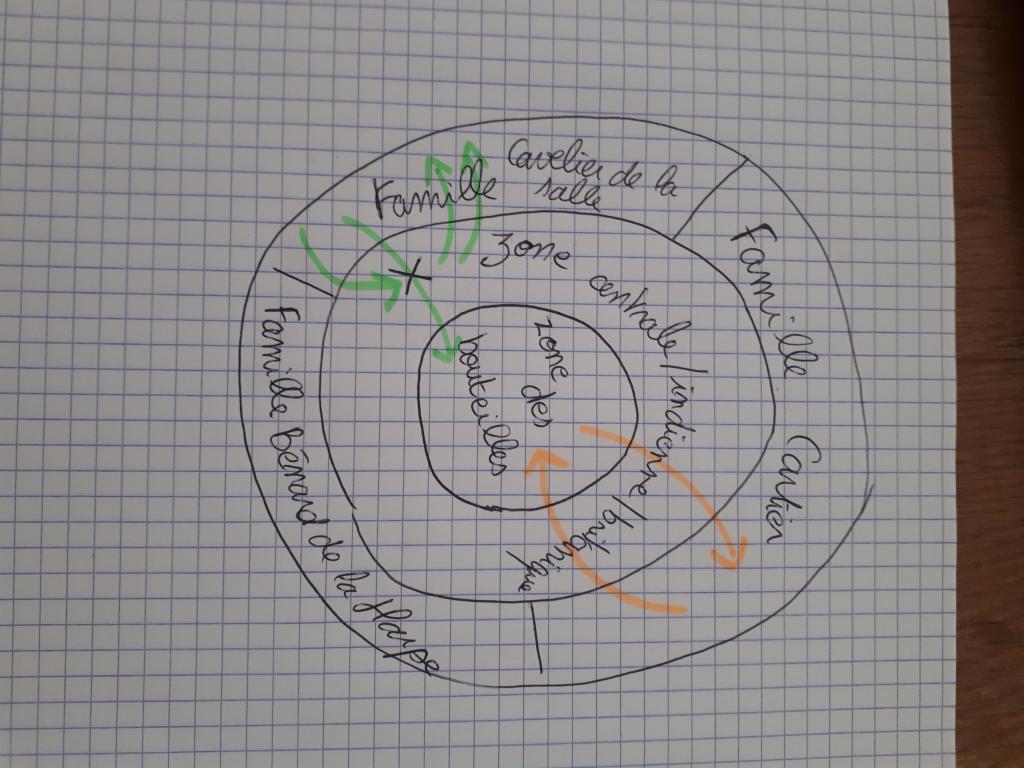 Famille
Cavelier de la
salle
Famille Cartier
Famille Bénard de la Harpe
zone centrale/indienne/britannique
zone
des
bouteilles